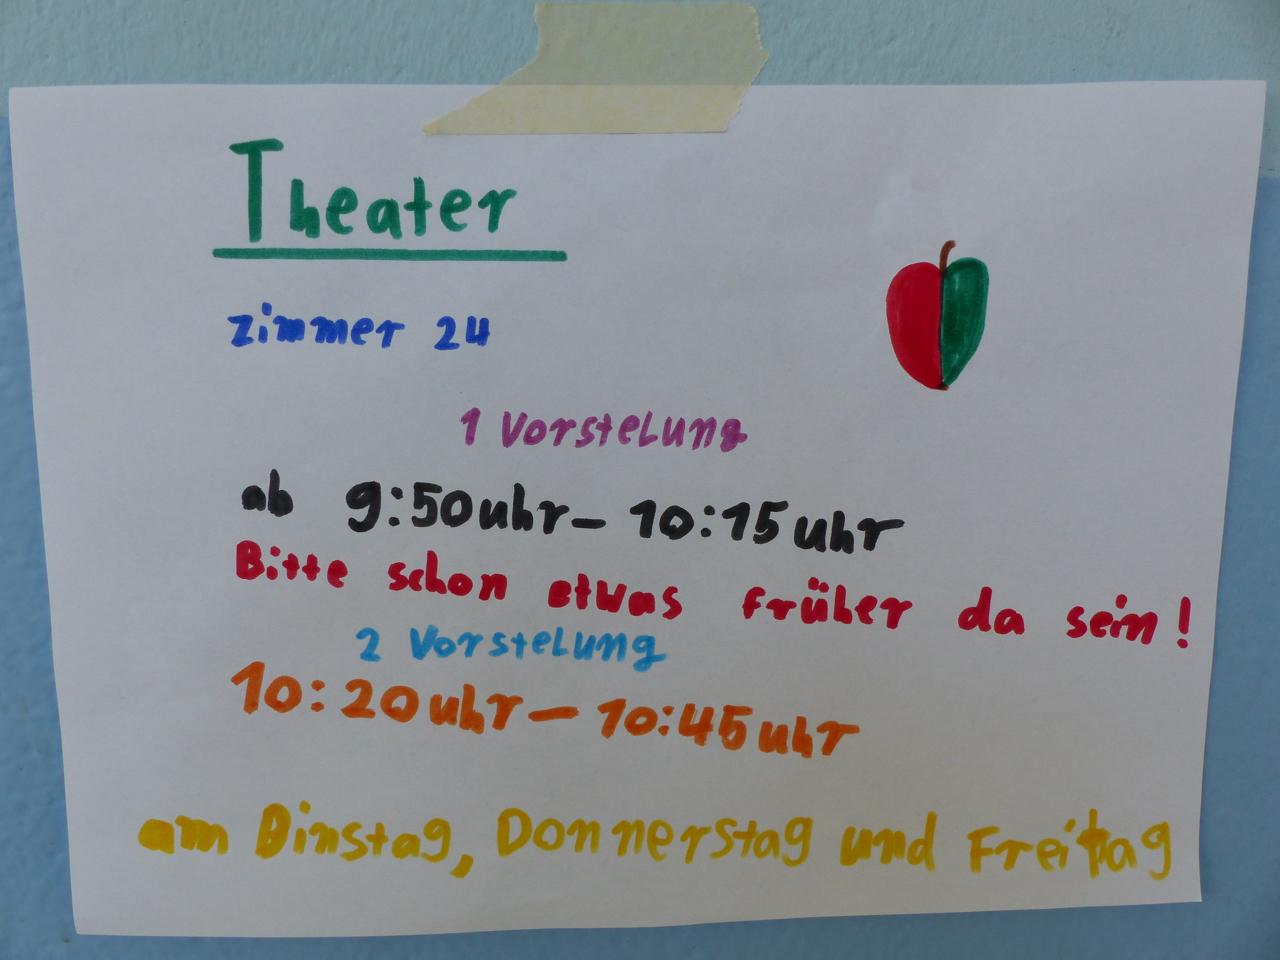 Theater
zimmer 24
1 Vorstelung
ab 9:50uhr – 10:15uhr
Bitte schon etwas früher da sein!
2 Vorstelung
10:20uhr – 10:45uhr
am Dinstag, Donnerstag und Freitag